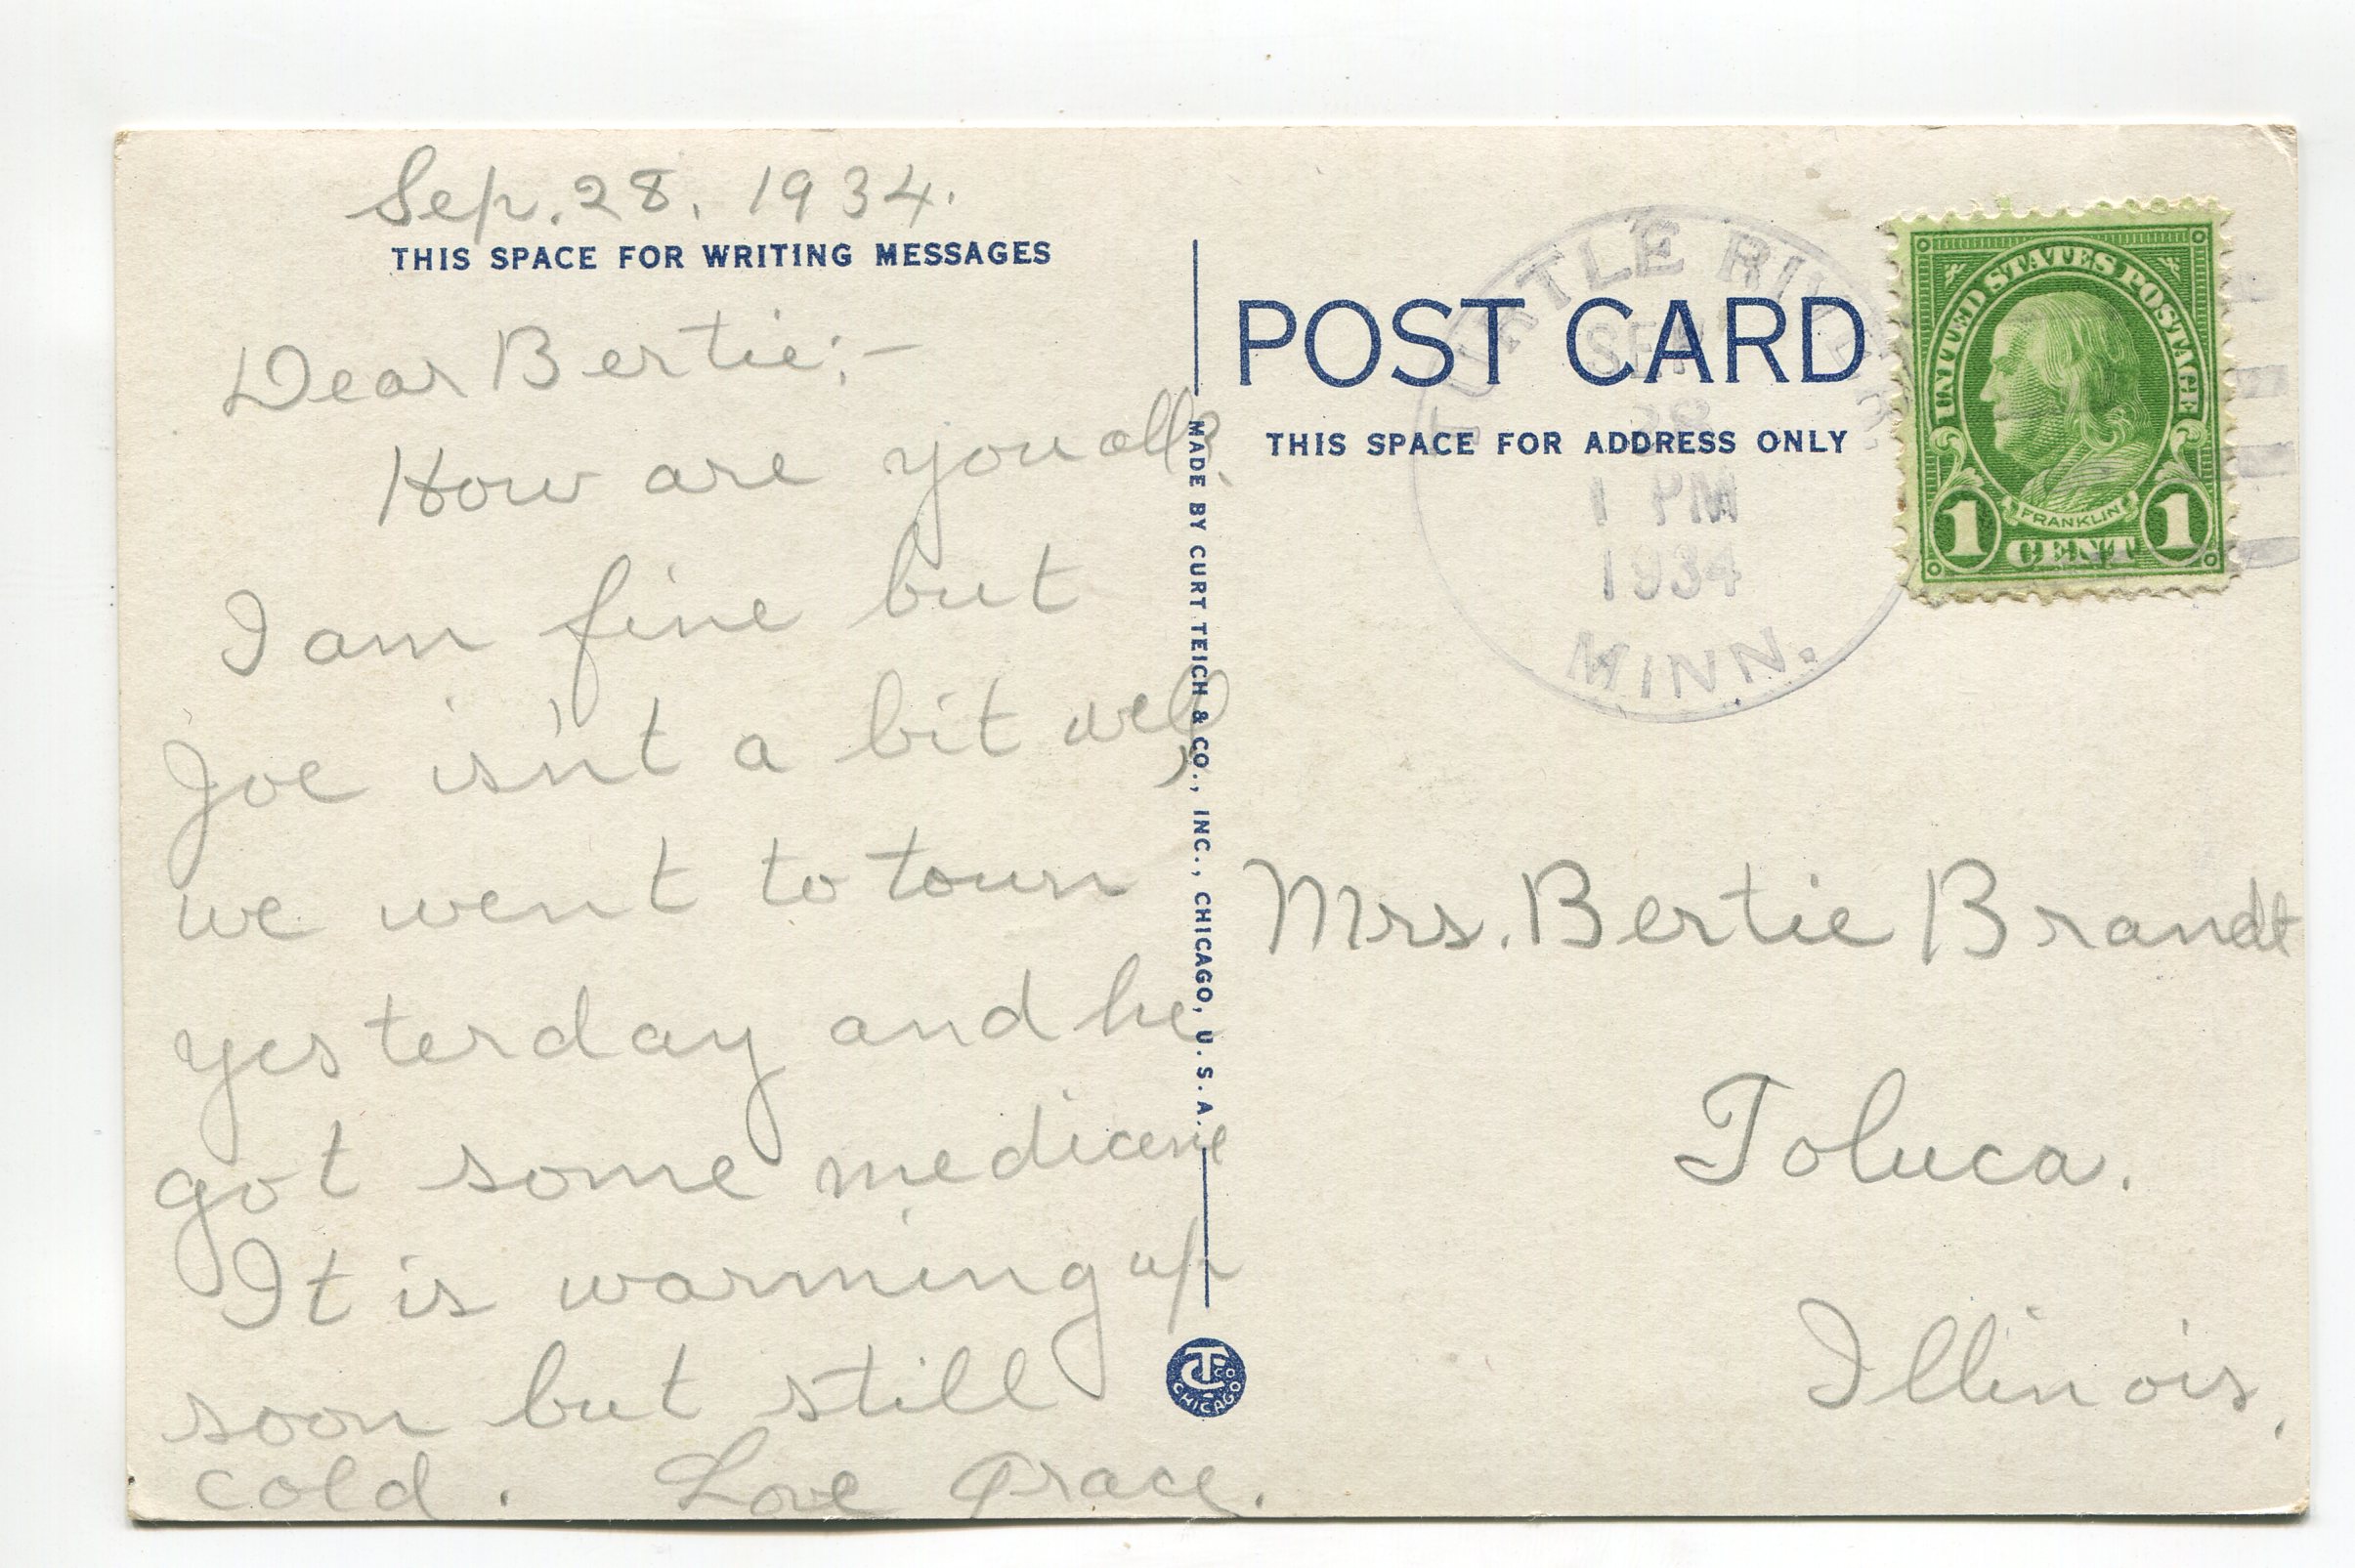 Sep. 28, 1934.
THIS SPACE FOR WRITING MESSAGES
Dear Bertie:-
How are you all?
I am fine but
Joe isn't a bit well,
we went to town
yesterday and he
got some medicene
It is warming up
soon but still
cold. Love Grace.
MADE BY CURT TEICH & CO., INC., CHICAGO, U.S.A.
CT CO
CHICAGO
POST CARD
THIS SPACE FOR ADDRESS ONLY
TURTLE RIVER
SEP
28
1 PM
1934
MINN.
UNITED STATES POSTAGE
FRANKLIN
1 CENT 1
Mrs. Bertie Brandt
Toluca.
Illinois.